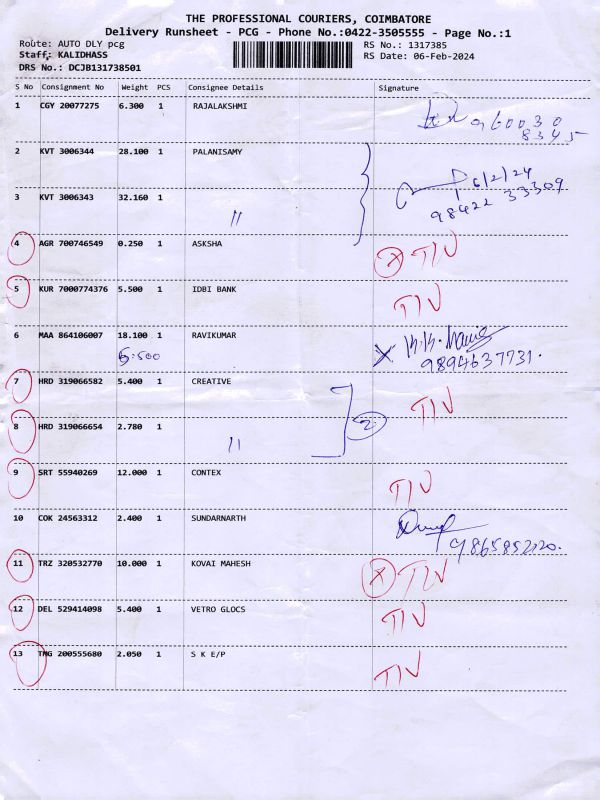 THE PROFESSIONAL COURIERS, COIMBATORE
Delivery Runsheet - PCG - Phone No.:0422-3505555 - Page No.:1
Route: AUTO DLY pcg RS No.: 1317385
Staff: KALIDHASS RS Date: 06-Feb-2024
DRS No.: DCJB131738501
S No Consignment No Weight PCS Consignee Details Signature
1 CGY 20077275 6.300 1 RAJALAKSHMI
960030
8345
2 KVT 3006344 28.100 1 PALANISAMY
6/2/24
3 KVT 3006343 32.160 1 98422 33309
"
4 AGR 700746549 0.250 1 ASKSHA X TIV
5 KUR 7000774376 5.500 1 IDBI BANK TIV
6 MAA 864106007 18.100 1 RAVIKUMAR X
5.500 9894637731.
7 HRD 319066582 5.400 1 CREATIVE TIV
8 HRD 319066654 2.780 1 2
"
9 SRT 55940269 12.000 1 CONTEX TIV
10 COK 24563312 2.400 1 SUNDARNARTH
9865852120.
11 TRZ 320532770 10.000 1 KOVAI MAHESH X TIV
12 DEL 529414098 5.400 1 VETRO GLOCS TIV
13 TMG 200555680 2.050 1 S K E/P TIV